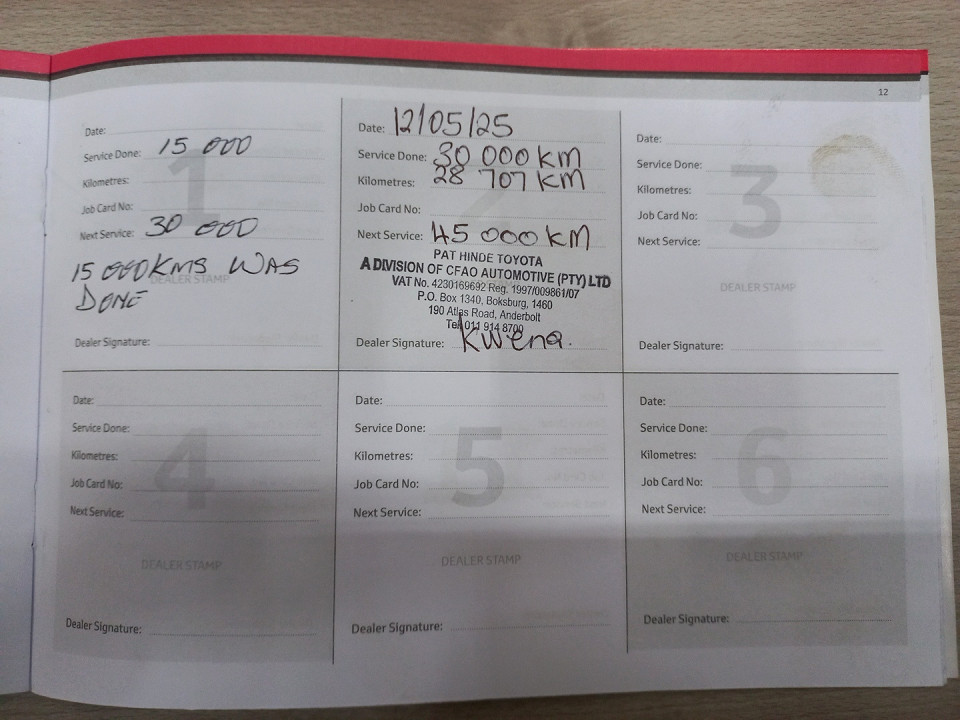 12
Date:
Service Done: 15 000
Kilometres:
Job Card No:
Next Service: 30 000
15 000KMS WAS
DONE
1
DEALER STAMP
Dealer Signature:
Date: 12/05/25
Service Done: 30 000 KM
Kilometres: 28 707 KM
Job Card No:
Next Service: 45 000 KM
PAT HINDE TOYOTA
A DIVISION OF CFAO AUTOMOTIVE (PTY) LTD
VAT No. 4230169692 Reg. 1997/009861/07
P.O. Box 1340, Boksburg, 1460
190 Atlas Road, Anderbolt
Tel 011 914 8700
Dealer Signature: Kwena.
Date:
Service Done:
Kilometres:
Job Card No:
Next Service:
3
DEALER STAMP
Dealer Signature:
Date:
Service Done:
Kilometres:
Job Card No:
Next Service:
4
DEALER STAMP
Dealer Signature:
Date:
Service Done:
Kilometres:
Job Card No:
Next Service:
5
DEALER STAMP
Dealer Signature:
Date:
Service Done:
Kilometres:
Job Card No:
Next Service:
6
DEALER STAMP
Dealer Signature: